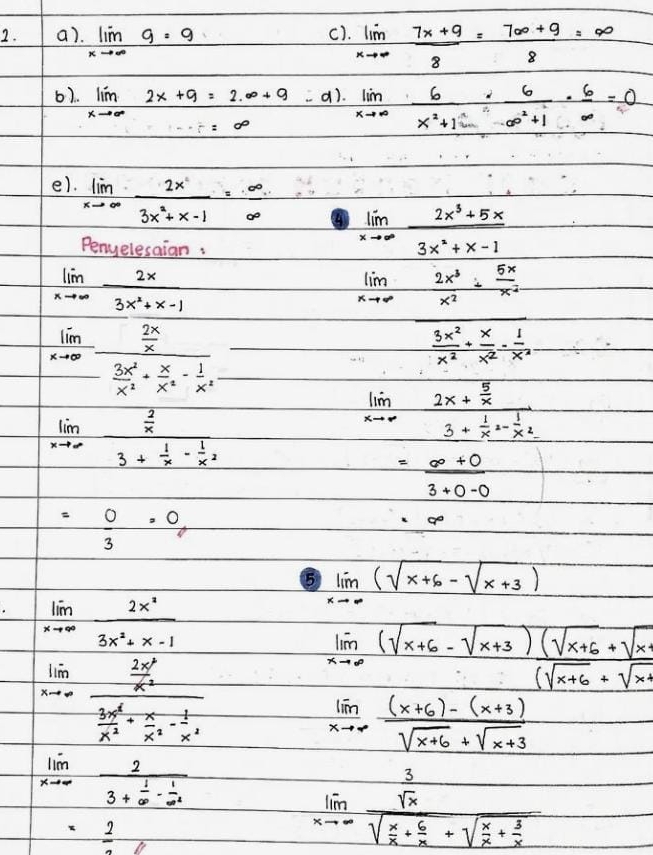 2. a). lim x→∞ 9 = 9
c). lim x→∞ (7x + 9)/8 = (7∞ + 9)/8 = ∞
b). lim x→∞ 2x + 9 = 2.∞ + 9
= ∞
d). lim x→∞ 6/(x² + 1) = 6/(∞² + 1) = 6/∞ = 0
e). lim x→∞ 2x/(3x² + x - 1) = ∞/∞
Penyelesaian :
lim x→∞ 2x/(3x² + x - 1)
lim x→∞ (2x/x)/(3x²/x² + x/x² - 1/x²)
lim x→∞ (2/x)/(3 + 1/x - 1/x²)
= 0/3 = 0
lim x→∞ 2x²/(3x² + x - 1)
lim x→∞ (2x²/x²)/(3x²/x² + x/x² - 1/x²)
lim x→∞ 2/(3 + 1/∞ - 1/∞²)
= 2/
4 lim x→∞ (2x³ + 5x)/(3x² + x - 1)
lim x→∞ (2x³/x² + 5x/x²)/(3x²/x² + x/x² - 1/x²)
lim x→∞ (2x + 5/x)/(3 + 1/x - 1/x²)
= (∞ + 0)/(3 + 0 - 0)
= ∞
5 lim x→∞ (√(x+6) - √(x+3))
lim x→∞ (√(x+6) - √(x+3)) (√(x+6) + √(x+ / (√(x+6) + √(x+
lim x→∞ ((x+6) - (x+3))/(√(x+6) + √(x+3))
lim x→∞ (3/√x)/(√(x/x + 6/x) + √(x/x + 3/x))